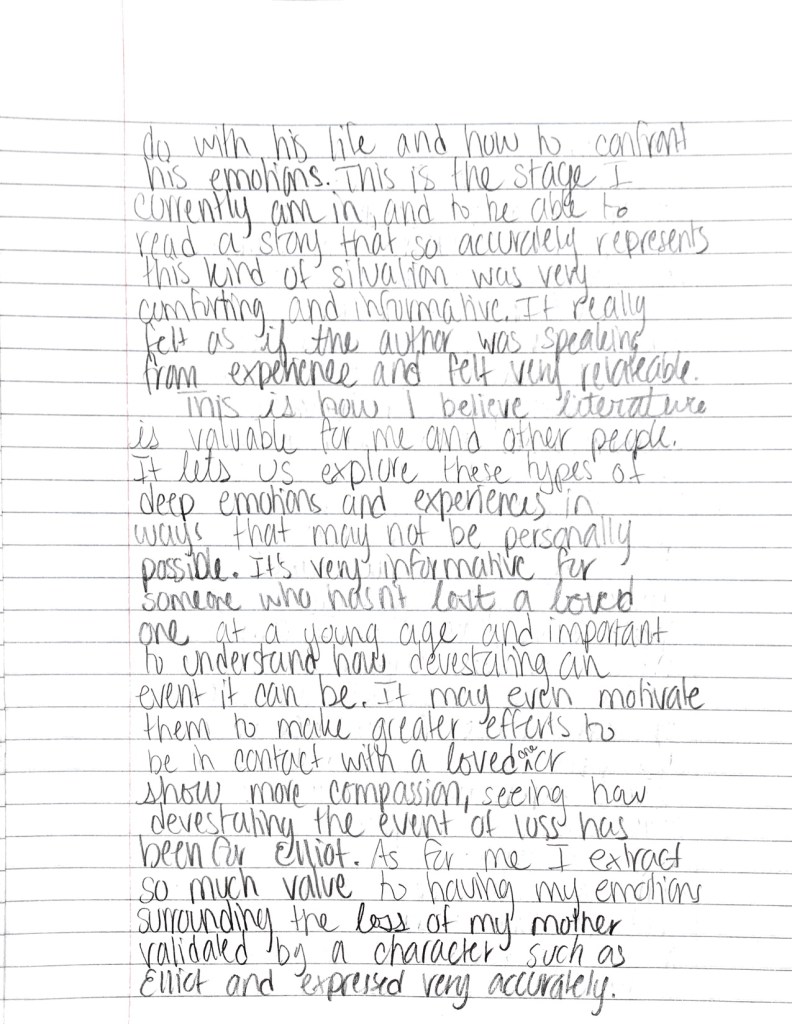 do with his life and how to confront
his emotions. This is the stage I
currently am in, and to be able to
read a story that so accurately represents
this kind of situation was very
comforting and informative. It really
felt as if the author was speaking
from experience and felt very relateable.
This is how I believe literature
is valuable for me and other people.
It lets us explore these types of
deep emotions and experiences in
ways that may not be personally
possible. It's very informative for
someone who hasn't lost a loved
one at a young age and important
to understand how devestating an
event it can be. It may even motivate
them to make greater efforts to
be in contact with a loved one or
show more compassion, seeing how
devestating the event of loss has
been for Elliot. As for me I extract
so much value to having my emotions
surrounding the loss of my mother
validated by a character such as
Elliot and expressed very accurately.